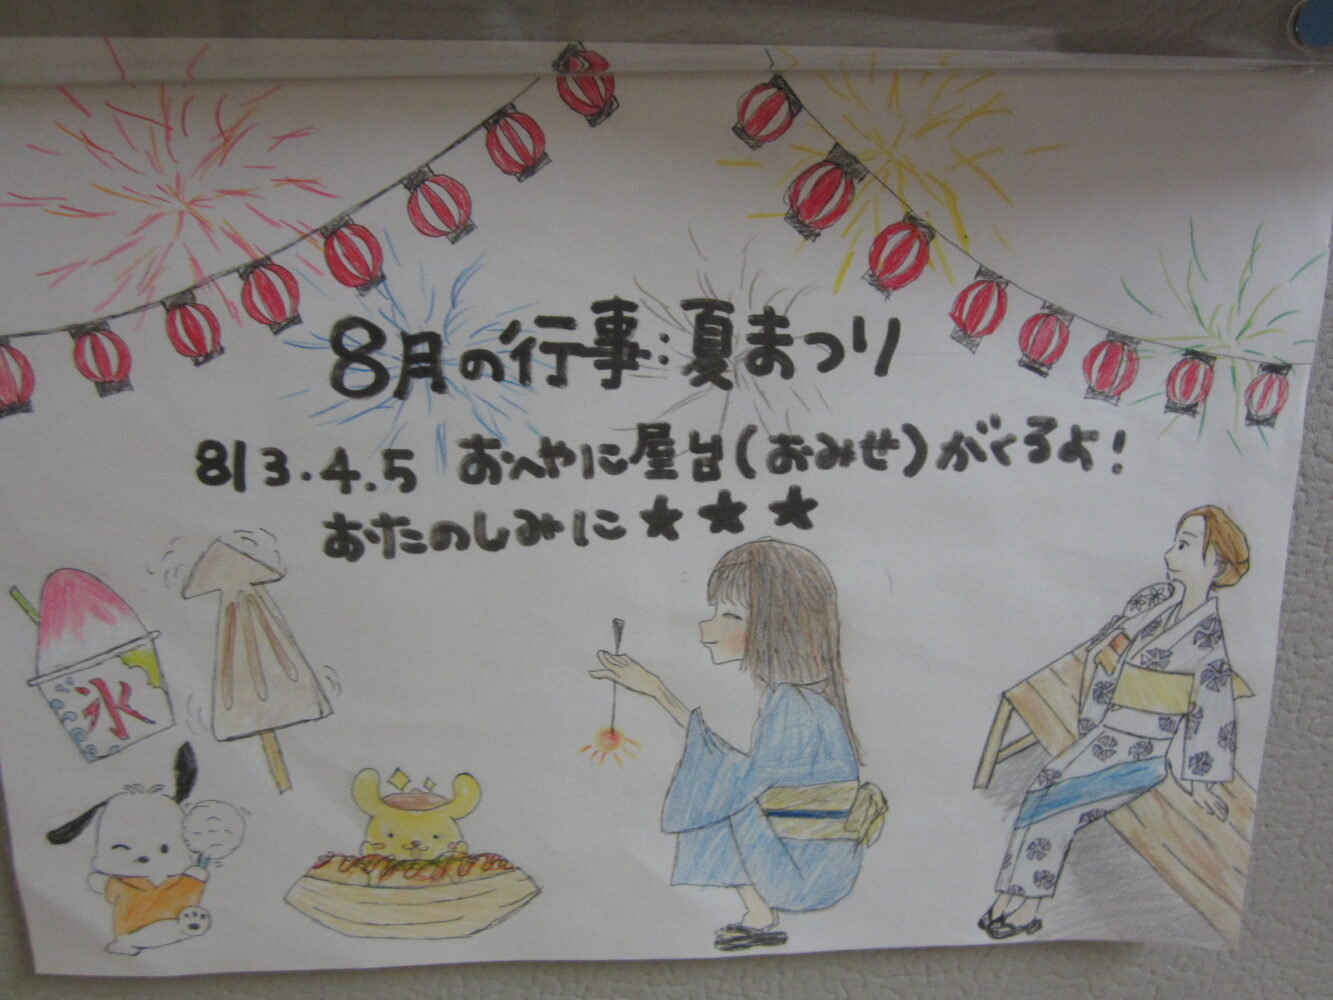 8月の行事:夏まつり
8/3.4.5 おへやに屋台(おみせ)がくるよ!
おたのしみに★★★
氷